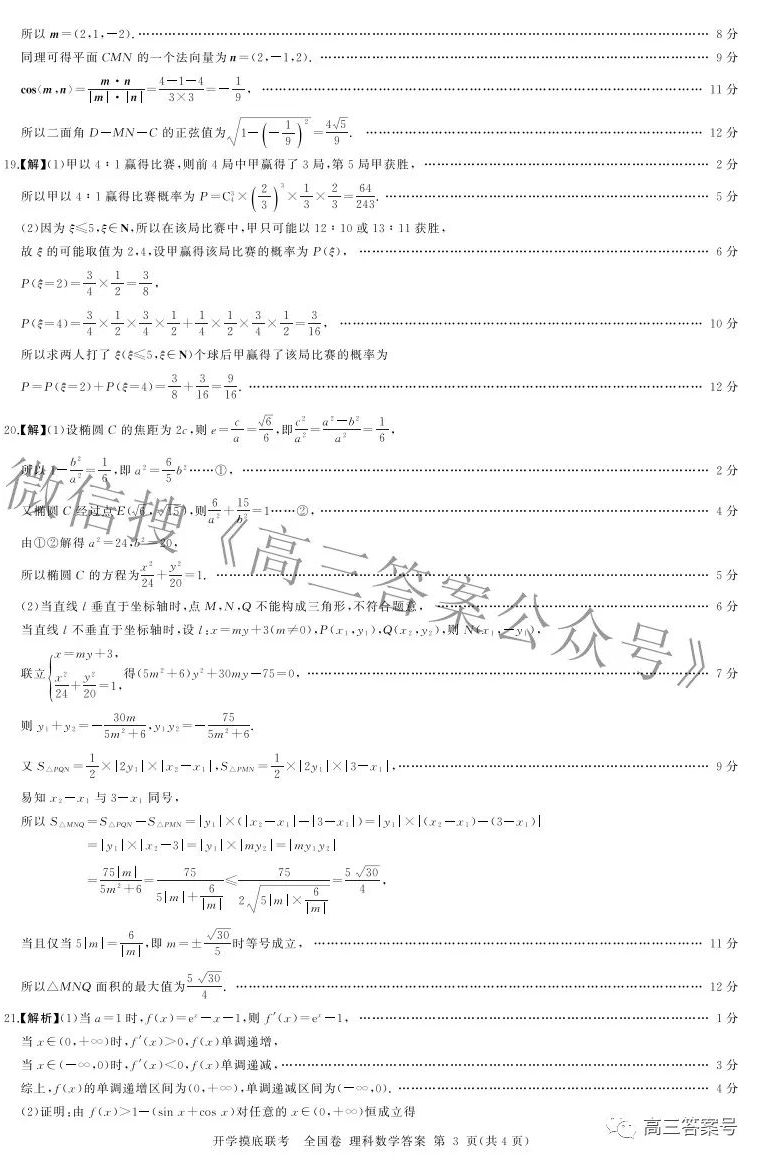 所以 m=(2,1,-2).……8 分
同理可得平面 CMN 的一个法向量为 n=(2,-1,2).……9 分
cos⟨m,n⟩=m·n/|m|·|n|=4-1-4/3×3=-1/9,……11 分
所以二面角 D-MN-C 的正弦值为√(1-(-1/9)²)=4√5/9.……12 分
19.【解】(1)甲以 4∶1 赢得比赛,则前 4 局中甲赢得了 3 局,第 5 局甲获胜,……2 分
所以甲以 4∶1 赢得比赛概率为 P=C₄³×(2/3)³×1/3×2/3=64/243.……5 分
(2)因为 ξ≤5,ξ∈N,所以在该局比赛中,甲只可能以 12∶10 或 13∶11 获胜,
故 ξ 的可能取值为 2,4,设甲赢得该局比赛的概率为 P(ξ),……6 分
P(ξ=2)=3/4×1/2=3/8,
P(ξ=4)=3/4×1/2×3/4×1/2+1/4×1/2×3/4×1/2=3/16,……10 分
所以求两人打了 ξ(ξ≤5,ξ∈N)个球后甲赢得了该局比赛的概率为
P=P(ξ=2)+P(ξ=4)=3/8+3/16=9/16.……12 分
20.【解】(1)设椭圆 C 的焦距为 2c,则 e=c/a=√6/6,即c²/a²=a²-b²/a²=1/6,
所以 1-b²/a²=1/6,即 a²=6/5b²……①,……2 分
又椭圆 C 经过点 E(√6,√15),则6/a²+15/b²=1……②,……4 分
由①②解得 a²=24,b²=20,
所以椭圆 C 的方程为x²/24+y²/20=1.……5 分
(2)当直线 l 垂直于坐标轴时,点 M,N,Q 不能构成三角形,不符合题意,……6 分
当直线 l 不垂直于坐标轴时,设 l:x=my+3(m≠0),P(x₁,y₁),Q(x₂,y₂),则 N(x₁,-y₁),
联立{x=my+3, x²/24+y²/20=1,得(5m²+6)y²+30my-75=0,……7 分
则 y₁+y₂=-30m/5m²+6,y₁y₂=-75/5m²+6.
又 S△PQN=1/2×|2y₁|×|x₂-x₁|,S△PMN=1/2×|2y₁|×|3-x₁|,……9 分
易知 x₂-x₁ 与 3-x₁ 同号,
所以 S△MNQ=S△PQN-S△PMN=|y₁|×(|x₂-x₁|-|3-x₁|)=|y₁|×|(x₂-x₁)-(3-x₁)|
=|y₁|×|x₂-3|=|y₁|×|my₂|=|my₁y₂|
=75|m|/5m²+6=75/(5|m|+6/|m|)≤75/(2√(5|m|×6/|m|))=5√30/4,
当且仅当 5|m|=6/|m|,即 m=±√30/5时等号成立,……11 分
所以△MNQ 面积的最大值为5√30/4.……12 分
21.【解析】(1)当 a=1 时,f(x)=eˣ-x-1,则 f′(x)=eˣ-1,……1 分
当 x∈(0,+∞)时,f′(x)>0,f(x)单调递增,
当 x∈(-∞,0)时,f′(x)<0,f(x)单调递减,……3 分
综上,f(x)的单调递增区间为(0,+∞),单调递减区间为(-∞,0).……4 分
(2)证明:由 f(x)>1-(sin x+cos x)对任意的 x∈(0,+∞)恒成立得
开学摸底联考 全国卷 理科数学答案 第 3 页(共 4 页)
微信搜《高三答案公众号》
高三答案号